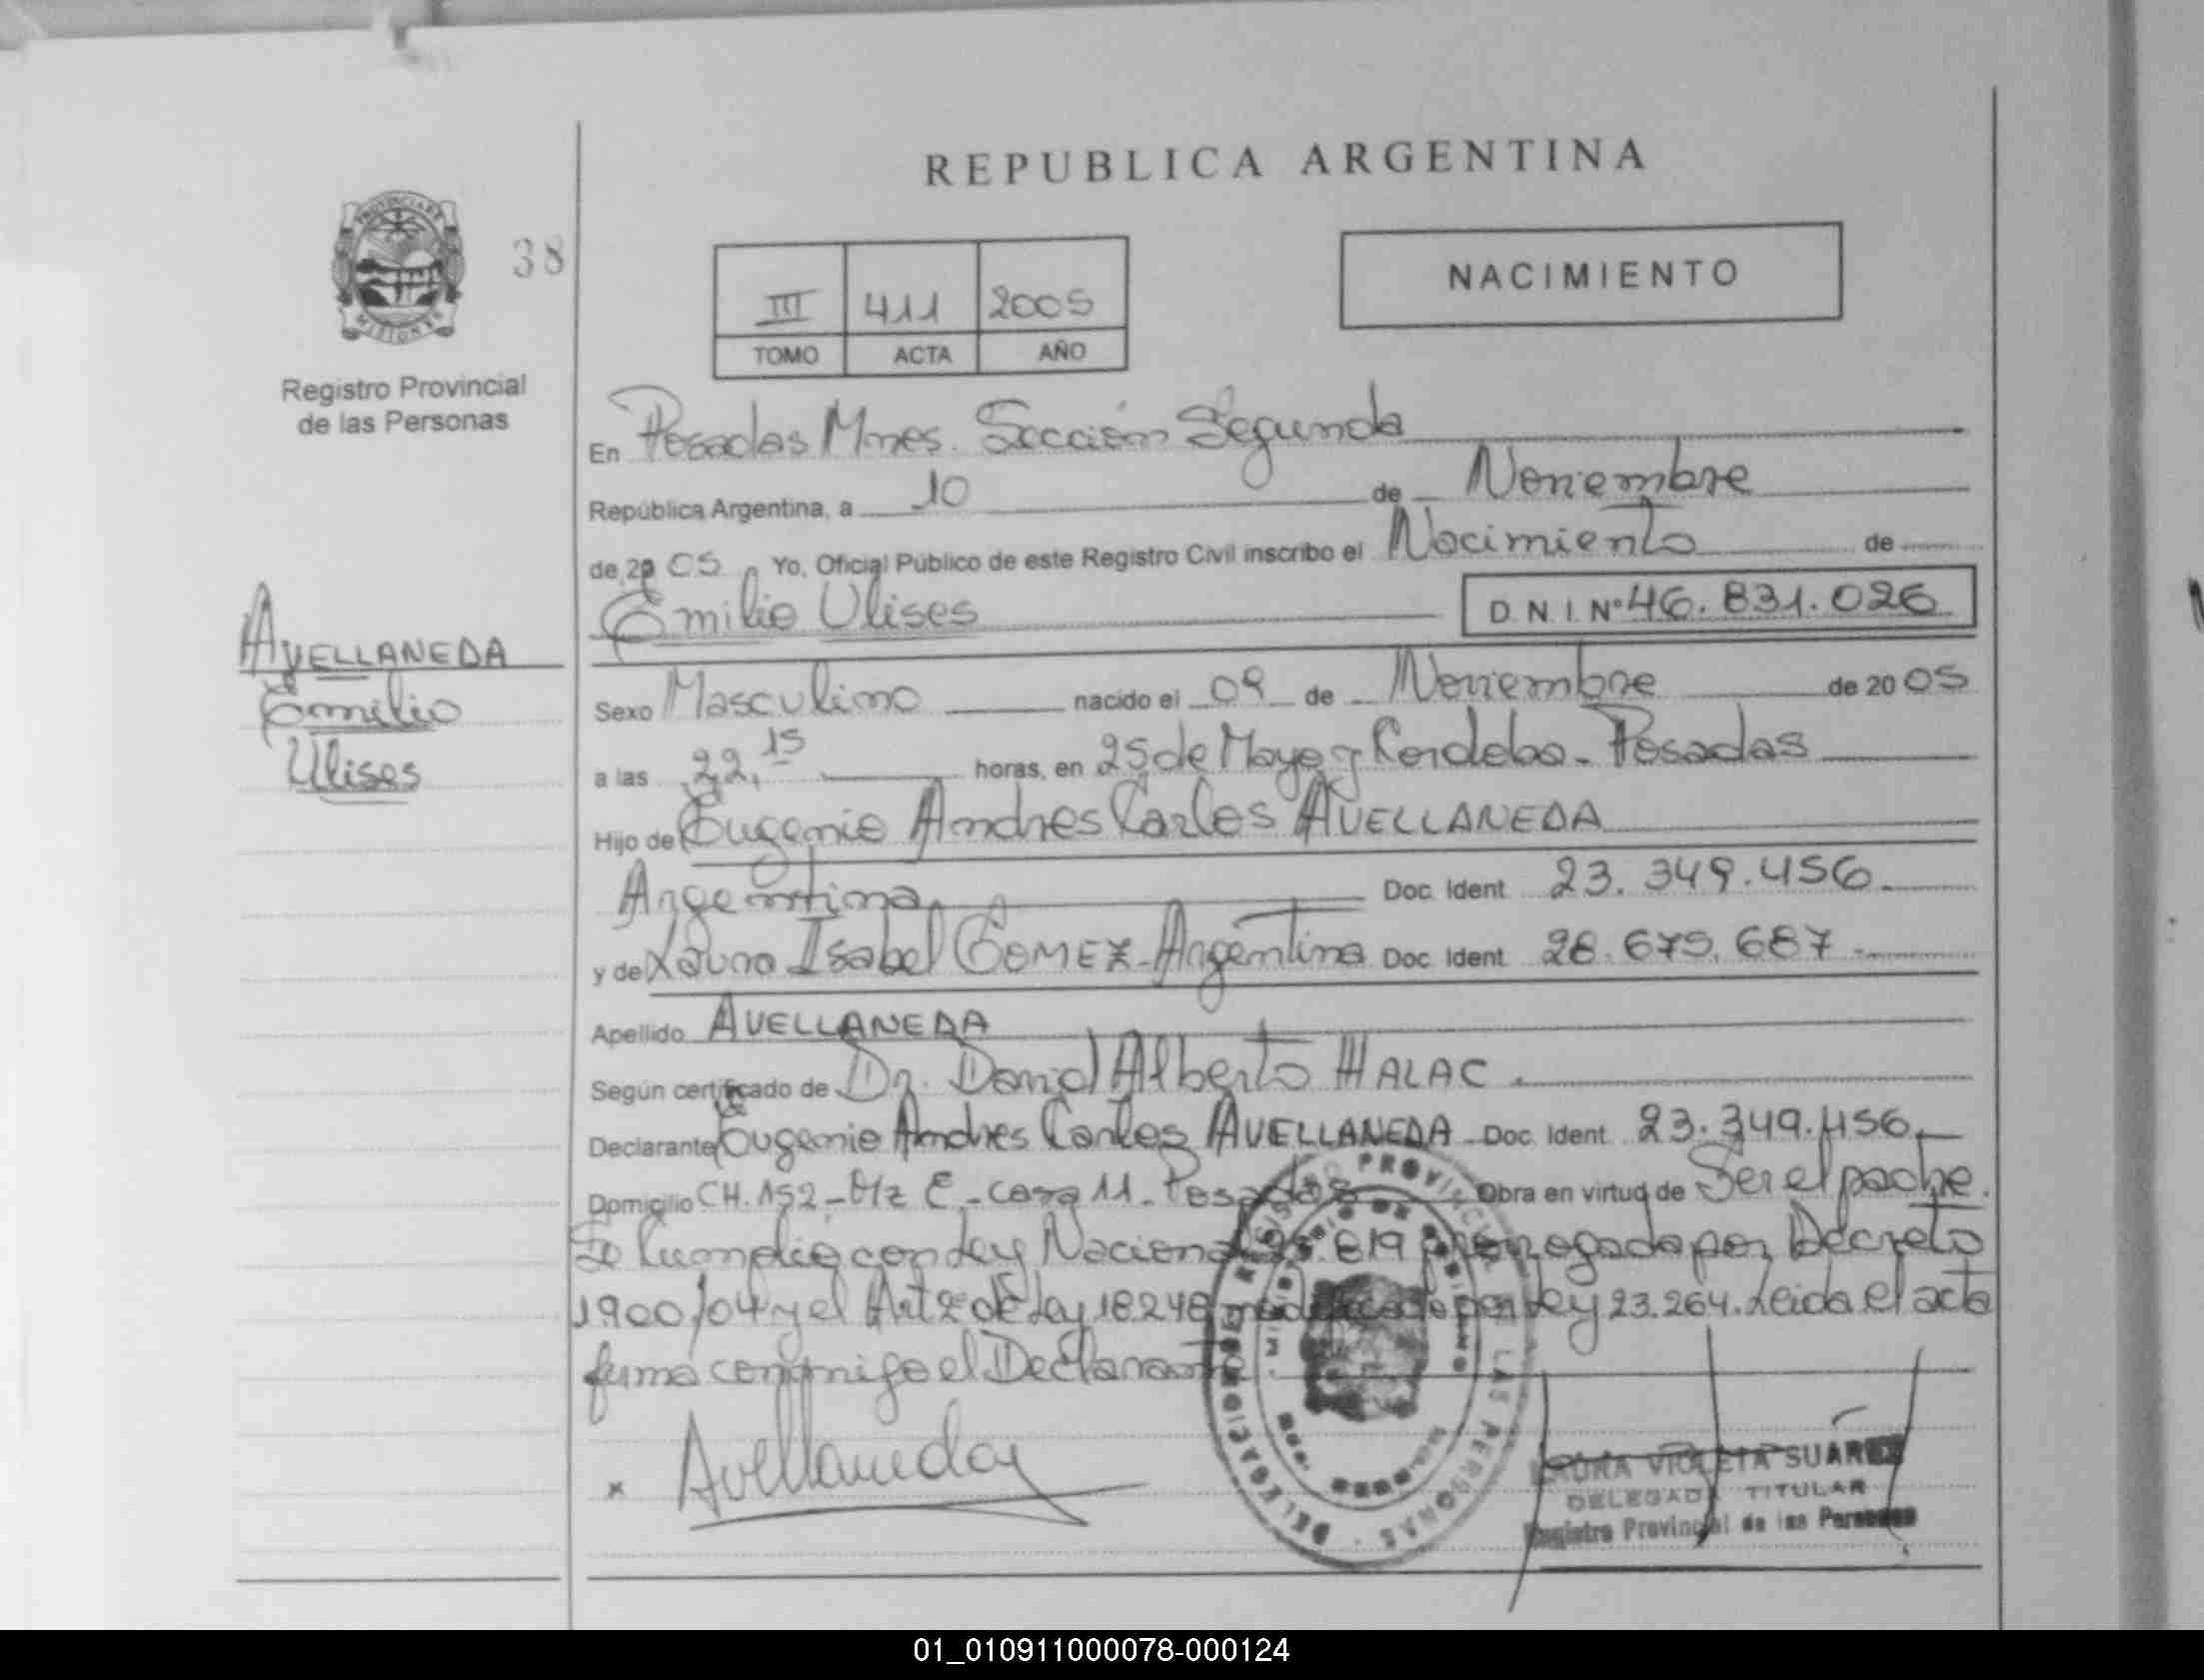 REPUBLICA ARGENTINA
PROVINCIA DE
MISIONES
38
Registro Provincial
de las Personas
III 411 2005
TOMO ACTA AÑO
NACIMIENTO
En Posadas Mnes. Sección Segunda
República Argentina, a 10 de Noviembre
de 2005 Yo, Oficial Público de este Registro Civil inscribo el Nacimiento de
Emilio Ulises D.N.I. Nº 46.831.026
AVELLANEDA
Emilio
Ulises
Sexo Masculino nacido el 09 de Noviembre de 2005
a las 22,15 horas, en 25 de Mayo y Cordoba - Posadas
Hijo de Eugenio Andres Carlos AVELLANEDA
Argentina Doc. Ident 23.349.456.
y de Laura Isabel GOMEZ - Argentina Doc. Ident 28.675.687
Apellido AVELLANEDA
Según certificado de Dr. David Alberto HALAC
Declarante Eugenio Andres Carlos AVELLANEDA Doc. Ident 23.349.456
Domicilio CH. 152 - Mz E - casa 11 - Posadas Obra en virtud de Ser el padre.
Se Cumplio con Ley Nacional 25.819 prorrogada por Decreto
1900/04 y el Art 2º de Ley 18248 modificado por Ley 23.264. Leida el acta
firma conmigo el Declarante.
x Avellaneda
REGISTRO PROVINCIAL DE LAS PERSONAS
DELEGACION
LAURA VIOLETA SUÁREZ
DELEGADA TITULAR
Registro Provincial de las Personas
01_010911000078-000124